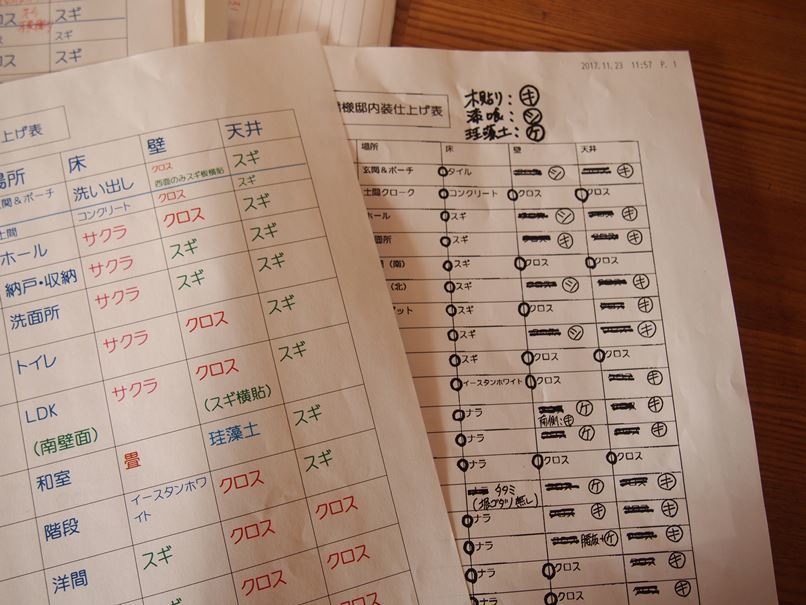 クロス スギ
スギ
クロス スギ
上げ表
場所 床 壁 天井
玄関＆ポーチ 洗い出し クロス スギ
西面のみスギ板横貼
土間 コンクリート クロス スギ
ホール サクラ クロス スギ
納戸・収納 サクラ スギ スギ
洗面所 サクラ スギ スギ
トイレ サクラ クロス スギ
LDK サクラ クロス スギ
(南壁面) (スギ横貼)
和室 畳 珪藻土 スギ
階段 イースタンホワイト クロス スギ
洋間 スギ クロス クロス
スギ クロス クロス
2017.11.23 11:57 P. 1
様邸内装仕上げ表
木貼り：キ
漆喰：シ
珪藻土：ケ
場所 床 壁 天井
玄関＆ポーチ タイル シ キ
土間クローク コンクリート クロス クロス
ホール スギ シ キ
面所 スギ キ キ
(南) スギ クロス クロス
(北) スギ シ キ
ット スギ クロス キ
スギ シ キ
スギ クロス クロス
イースタンホワイト クロス キ
ナラ ケ キ
南側:キ
ナラ ケ キ
ナラ クロス クロス
タタミ ケ キ
(掘ゴタツ無し)
ナラ キ キ
ナラ ケ キ
ナラ クロス キ
ナラ クロス キ